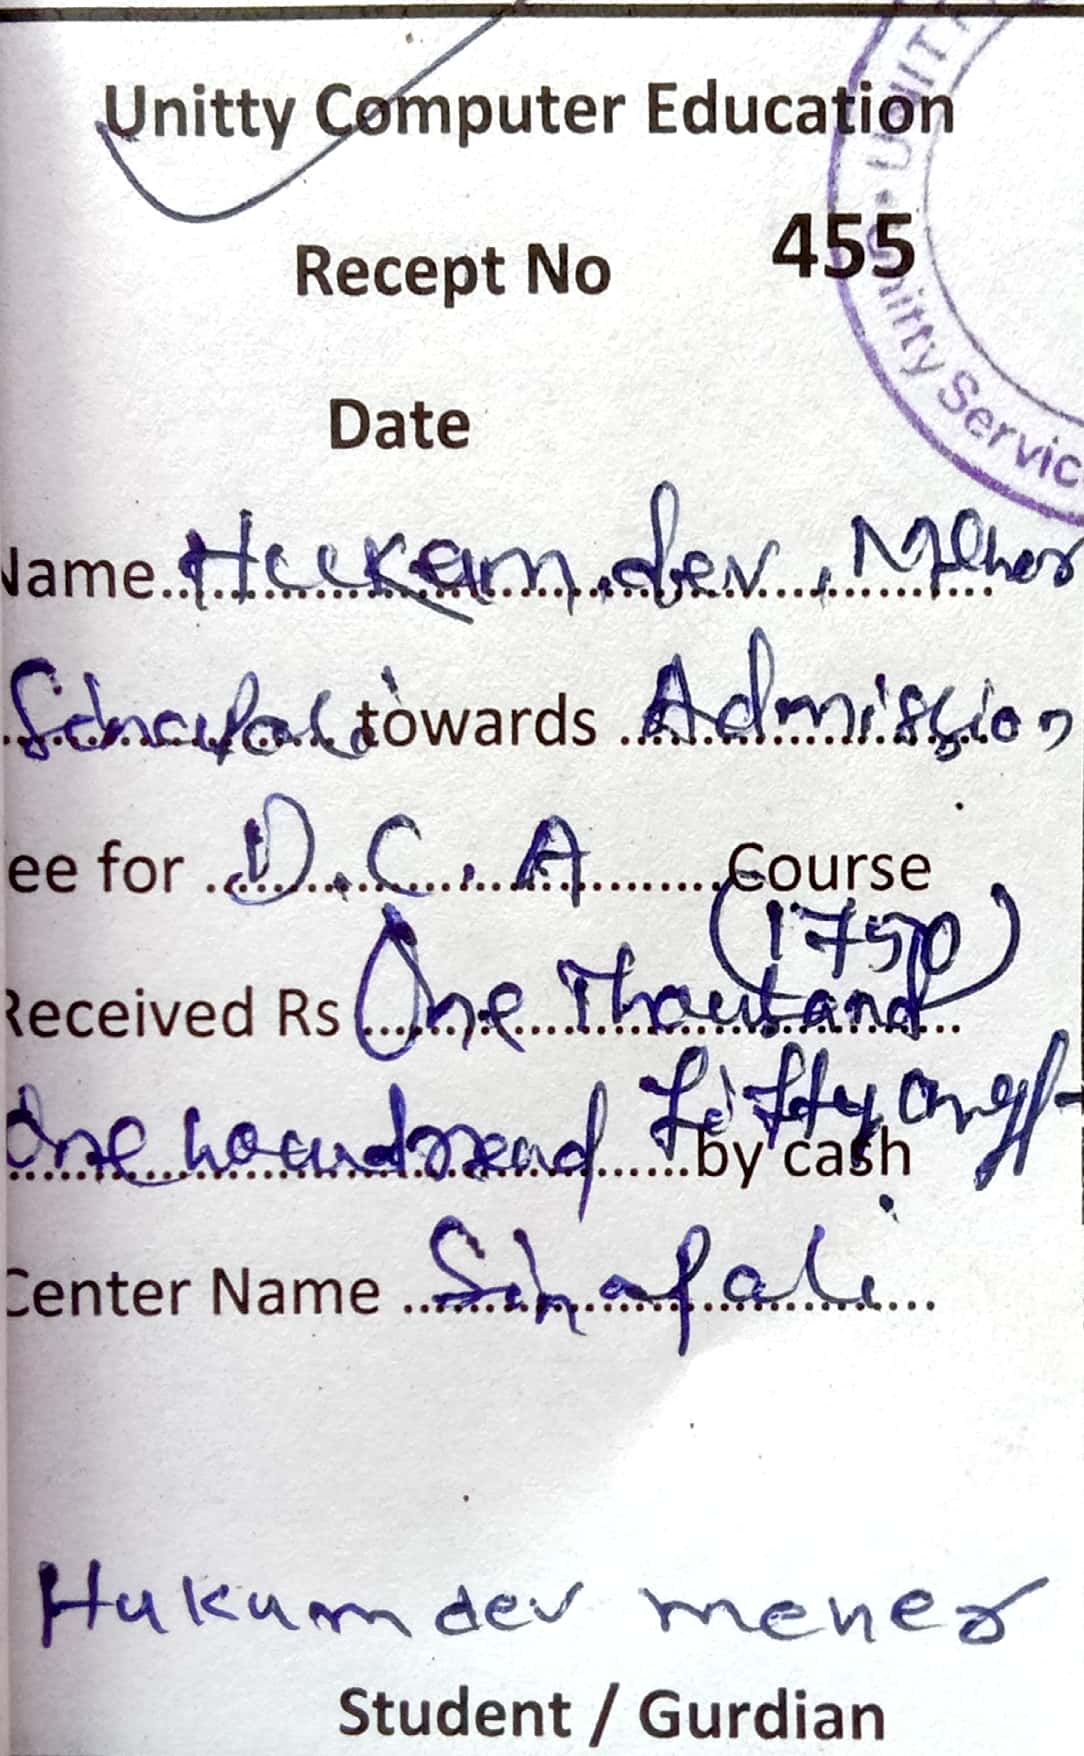 Unitty Computer Education
Recept No 455
Date
Name Hukam dev, Meher
Sinapali towards Admission
ee for D.C.A Course
(1750)
Received Rs One Thousand
One houndread Fifty only/-
by cash
Center Name Sinapali
Hukum dev meher
Student / Gurdian
UNIT
Unitty Servic